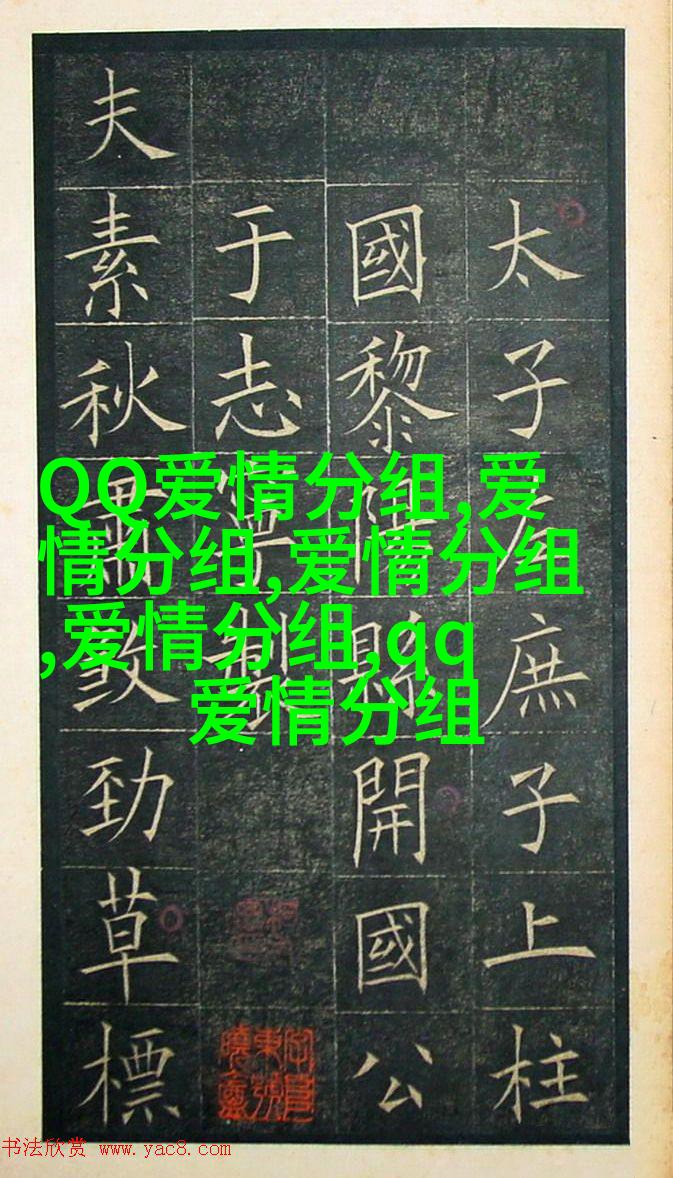 太子左庶子上柱
國黎陽縣開國公
于志寧製
夫素秋肅勁草標
QQ爱情分组,爱
情分组,爱情分组
,爱情分组,qq
爱情分组
书法欣赏 www.yac8.com